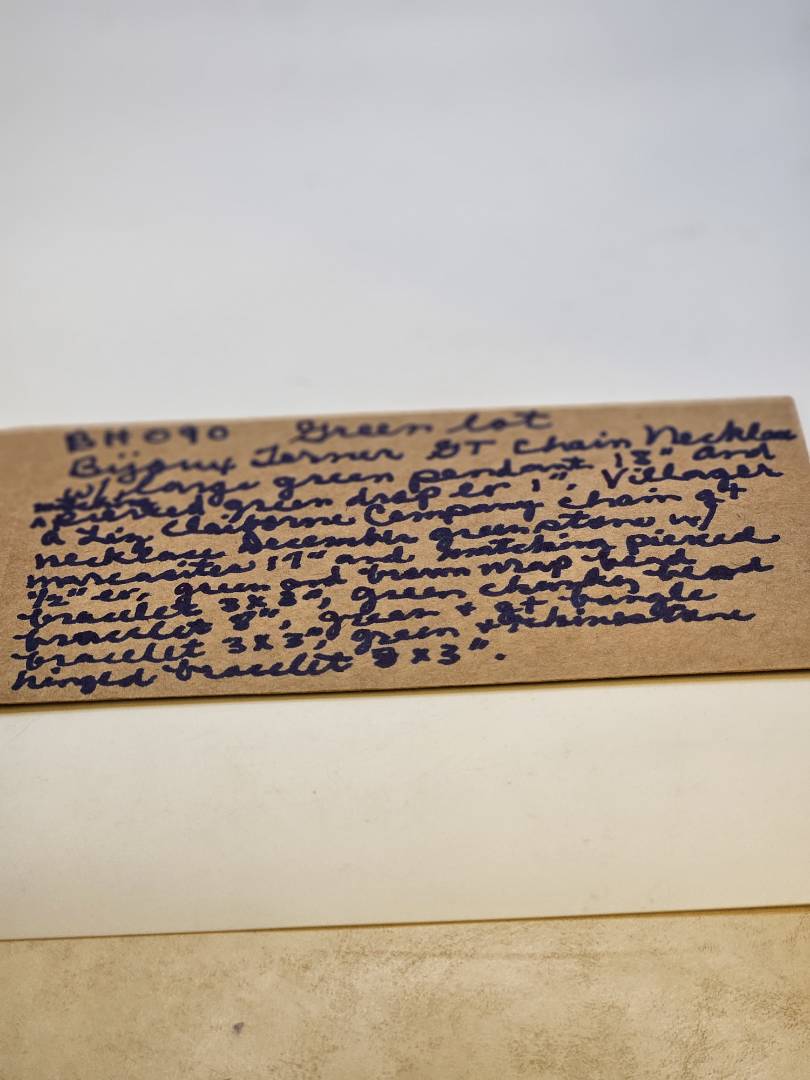 BH090 Green lot
Bijoux Terner GT Chain Necklace
w/ large green pendant 18" and
pierced green drop er 1". Villager
a Liz Claiborne Company chain gt
necklace December green stone w/
marcasites 17" and matching pierced
1/2" er, green and brown wrap bead
bracelet 3x3", green chunky bead
bracelet 8", green + gt bangle
bracelet 3x3", green + rhinestone
hinged bracelet 3x3".